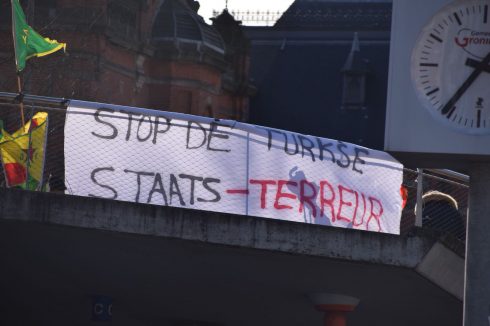 STOP DE TURKSE
STAATS-TERREUR
Gemee
Gronin